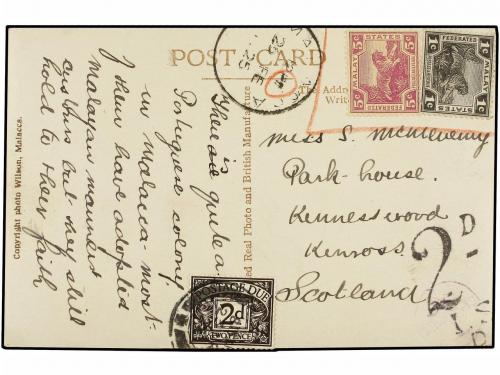 POST CARD
There is quite a
Portuguese colony
in Malacca most-
of them have adopted
malayan manners
customs but they still
hold to their faith
Copyright photo Wilson, Malacca.
ad Real Photo and British Manufacture
The Addre
Write
FEDERATED
MALAY
STATES
5c
5c
FEDERATED
MALAY
STATES
1c
1c
Miss S.
Park-house.
Kennesswood
Kinross.
Scotland
2D
POSTAGE DUE
2d
TWO PENCE